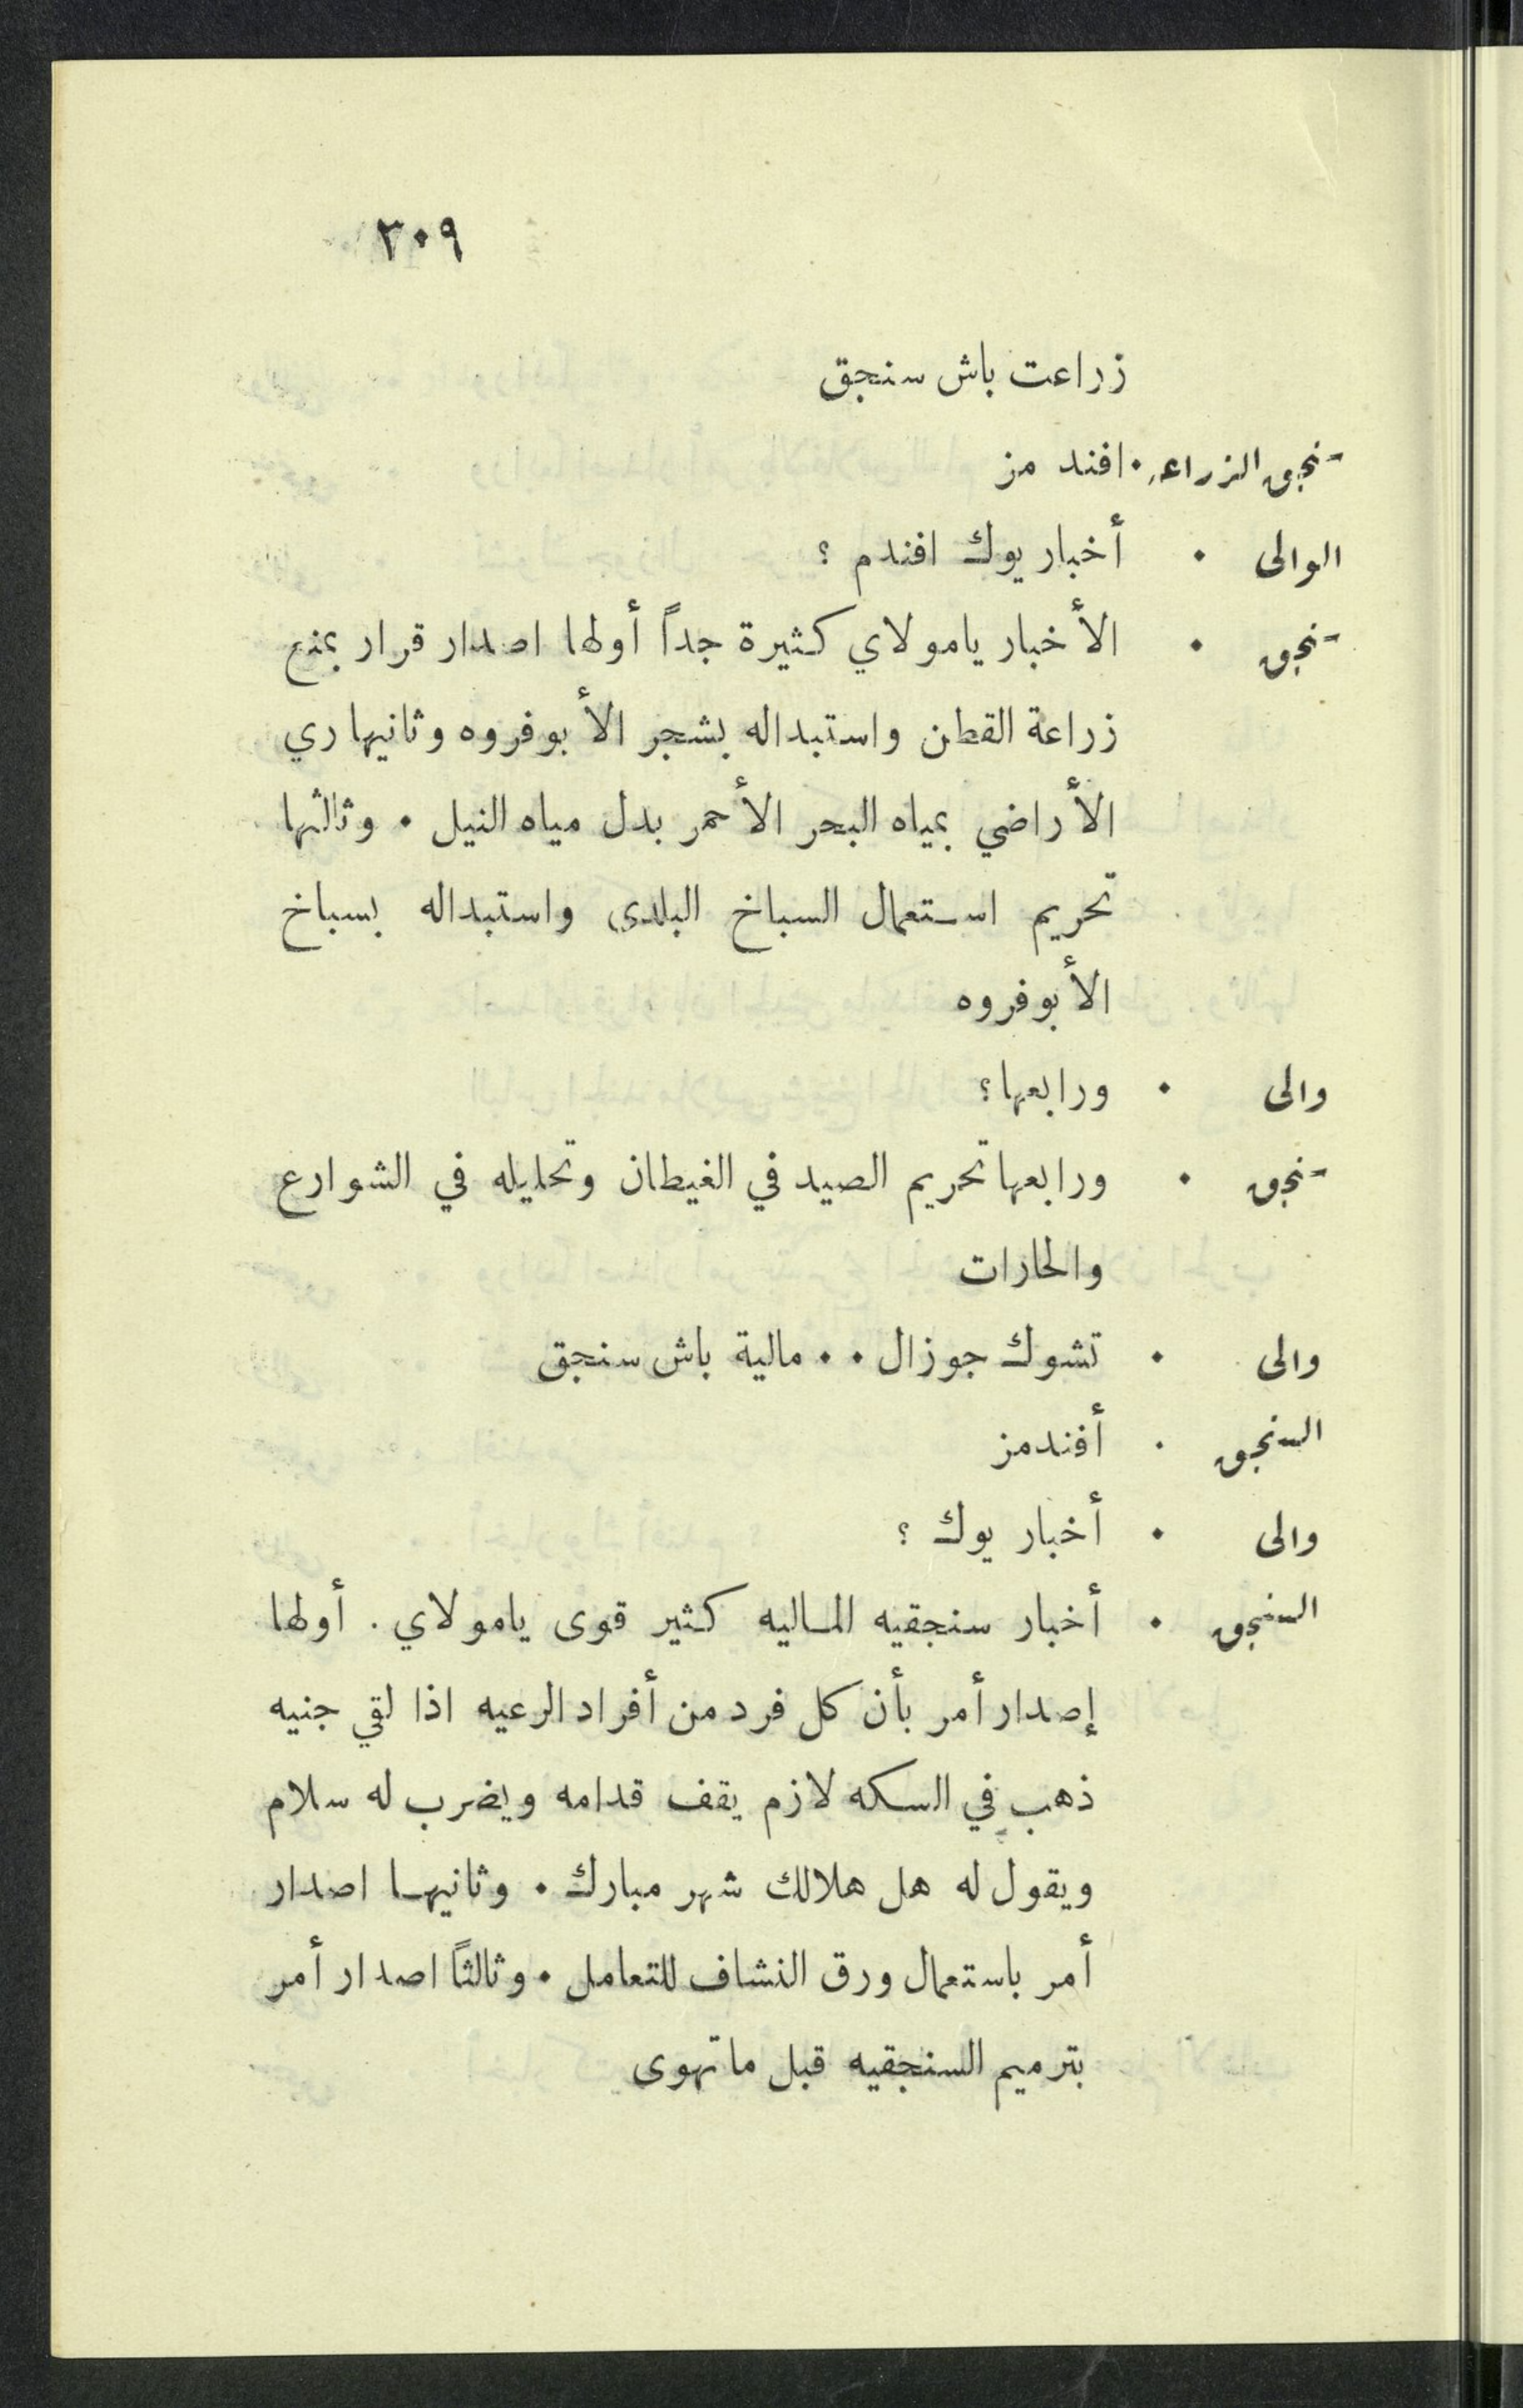 ٣٠٩
زراعت باش سنجق
سنجق الزراعه ٠ افند مز
الوالى ٠ أخبار يوك افندم ؟
سنجق ٠ الأخبار يامولاي كثيرة جداً أولها اصدار قرار بمنع
زراعة القطن واستبداله بشجر الأبوفروه وثانيها ري
الأراضي بمياه البحر الأحمر بدل مياه النيل ٠ وثالثها
تحريم استعمال السباخ البلدى واستبداله بسباخ
الأبوفروه
والى ٠ ورابعها؟
سنجق ٠ ورابعها تحريم الصيد في الغيطان وتحليله في الشوارع
والحارات
والى ٠ تشوك جوزال ٠ ٠ مالية باش سنجق
السنجق ٠ أفندمز
والى ٠ أخبار يوك ؟
السنجق ٠ أخبار سنجقيه الماليه كثير قوى يامولاي . أولها
إصدار أمر بأن كل فرد من أفراد الرعيه اذا لقي جنيه
ذهب في السكه لازم يقف قدامه ويضرب له سلام
ويقول له هل هلالك شهر مبارك ٠ وثانيها اصدار
أمر باستعمال ورق النشاف للتعامل ٠ وثالثاً اصدار أمر
بترميم السنجقيه قبل ماتهوى